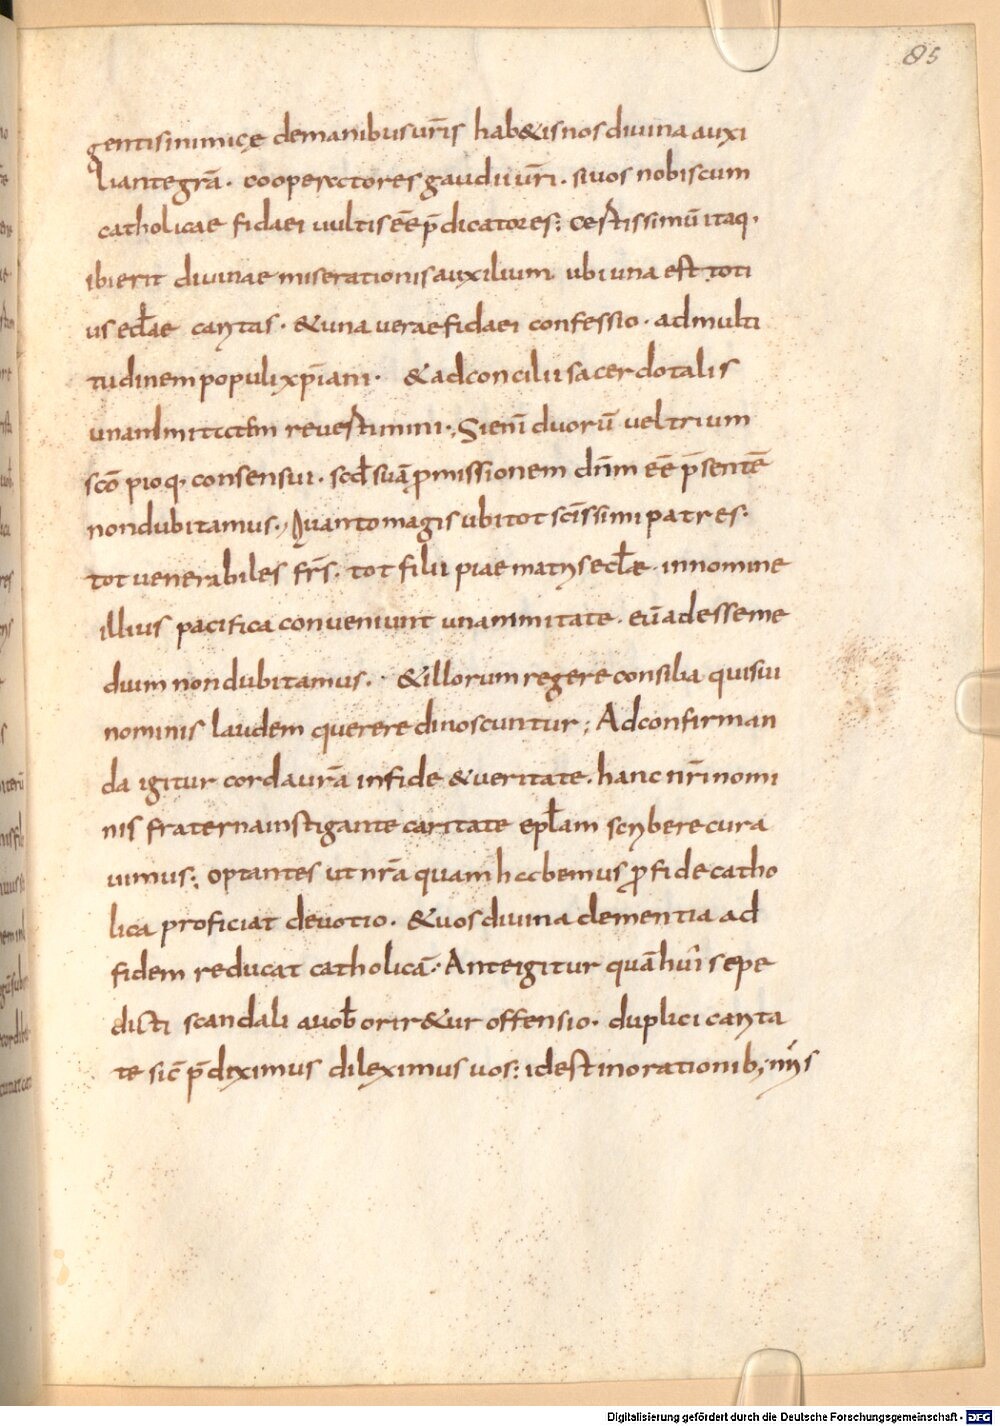 85
gentis inimicę demanibus ur̄is hab&is nos diuina auxi
liante grā. cooperatores gaudii ur̄i. si uos nobiscum
catholicae fidaei uultis eē p̄dicatores: Certissimū itaq.
ibi erit diuinae miserationis auxilium ubi una est toti
us ecłae caritas. & una uerae fidaei confessio. ad multi
tudinem populi xp̄iani. & ad concilii sacerdotalis
unanimitatem reuestimini., Si enī duorū uel trium
sc̄o pioq. consensui. scd̄ suā p̄missionem dn̄m eē p̄sentē
non dubitamus., Quanto magis ubi tot sc̄issimi patres.
tot uenerabiles fr̄s. tot filii piae matris ecłæ. in nomine
illius pacifica conueniunt unanimitate. eū adesse me
dium non dubitamus. & illorum regere consilia qui sui
nominis laudem querere dinoscuntur; Ad confirman
da igitur corda ur̄a in fide & ueritate. hanc nr̄i nomi
nis fraterna instigante caritate epłam scribere cura
uimus; optantes ut nr̄a quam habemus p̄ fide catho
lica proficiat deuotio. & uos diuina clementia ad
fidem reducat catholicā. Ante igitur quā hui̓ sepe
dicti scandali a uob̄ orir&ur offensio. duplici carita
te sic̄ p̄diximus dileximus uos: id est in orationib; nr̄is
Digitalisierung gefördert durch die Deutsche Forschungsgemeinschaft - DFG